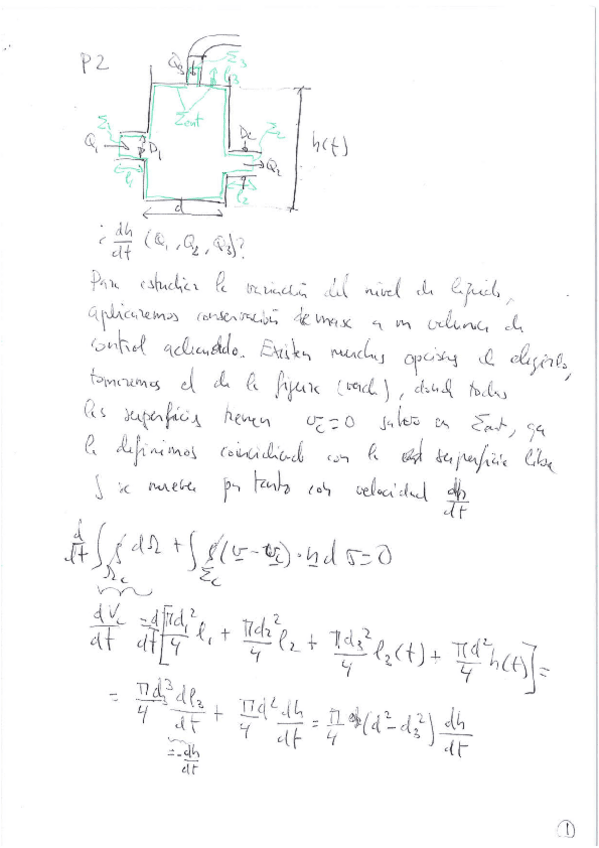 P2
Q₃ Σ₃
l₃
Σext
Σ₁ D₂ Σ₂
Q₁ D₁ Q₂ h(t)
l₁ l₂
d
¿ dh/dt (Q₁, Q₂, Q₃)?
Para estudiar la variación del nivel de líquido,
aplicaremos conservación de masa a un volumen de
control adecuado. Existen muchas opciones de elegirlo,
tomaremos el de la figura (verde), donde todas
las superficies tienen v_c=0 salvo en Σext, que
la definimos coincidiendo con la superficie libre
y se mueve por tanto con velocidad dh/dt
d/dt ∫_Ωc ρ dΩ + ∫_Σc ρ(v - v_c)·n dσ=0
dV_c/dt = d/dt [πd₁²/4 l₁ + πd₂²/4 l₂ + πd₃²/4 l₃(t) + πd²/4 h(t)] =
= πd₃³/4 dl₃/dt + πd²/4 dh/dt = π/4 (d²-d₃²) dh/dt
= -dh/dt
1